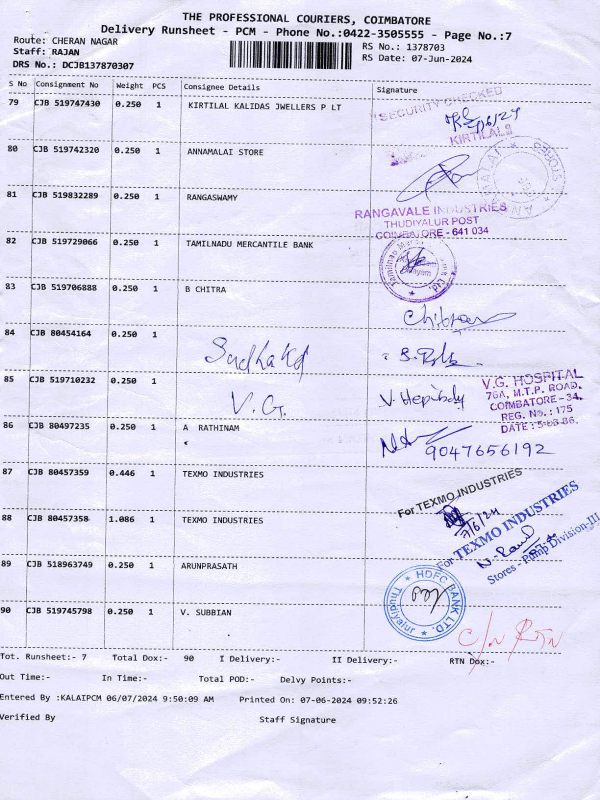 THE PROFESSIONAL COURIERS, COIMBATORE
Delivery Runsheet - PCM - Phone No.:0422-3505555 - Page No.:7
Route: CHERAN NAGAR
RS No.: 1378703
Staff: RAJAN
RS Date: 07-Jun-2024
DRS No.: DCJB137870307
S No Consignment No Weight PCS Consignee Details Signature
SECURITY CHECKED
79 CJB 519747430 0.250 1 KIRTILAL KALIDAS JWELLERS P LT
KIRTILALS
80 CJB 519742320 0.250 1 ANNAMALAI STORE
81 CJB 519832289 0.250 1 RANGASWAMY
RANGAVALE INDUSTRIES
THUDIYALUR POST
COIMBATORE - 641 034
82 CJB 519729066 0.250 1 TAMILNADU MERCANTILE BANK
83 CJB 519706888 0.250 1 B CHITRA
Chitraa
84 CJB 80454164 0.250 1
V.G. HOSPITAL
85 CJB 519710232 0.250 1
76A, M.T.P. ROAD.
COIMBATORE - 34.
V.G.
REG. No. : 175
DATE : 5-03-86.
86 CJB 80497235 0.250 1 A RATHINAM
9047656192
87 CJB 80457359 0.446 1 TEXMO INDUSTRIES
For TEXMO INDUSTRIES
7/6/24
88 CJB 80457358 1.086 1 TEXMO INDUSTRIES
For TEXMO INDUSTRIES
Stores - Pump Division-III
89 CJB 518963749 0.250 1 ARUNPRASATH
HDFC BANK LTD.
Thudiyalur
90 CJB 519745798 0.250 1 V. SUBBIAN
C/N RTN
Tot. Runsheet:- 7 Total Dox:- 90 I Delivery:- II Delivery:- RTN Dox:-
Out Time:- In Time:- Total POD:- Delvy Points:-
Entered By :KALAIPCM 06/07/2024 9:50:09 AM Printed On: 07-06-2024 09:52:26
Verified By Staff Signature